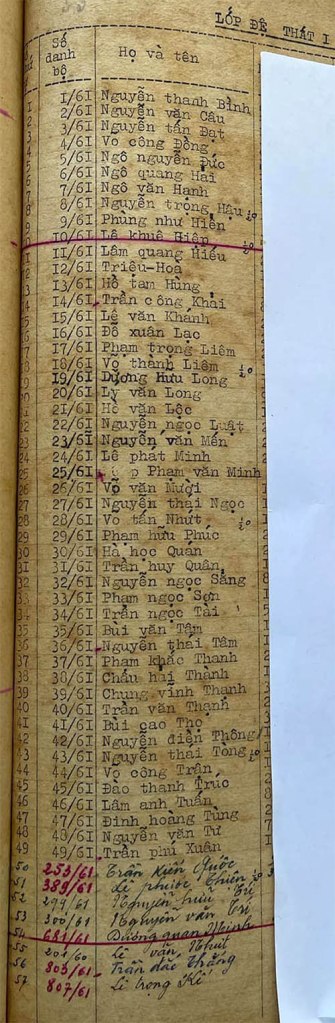 LỚP ĐỆ THẤT I
Số danh bộ Họ và tên
1 I/6I Nguyễn thanh Bình
2 2/6I Nguyễn văn Cầu
3 3/6I Nguyễn tấn Đạt
4 4/6I Vo công Đồng
5 5/6I Ngô nguyễn Đức
6 6/6I Ngô quang Hải
7 7/6I Ngô văn Hanh
8 8/6I Nguyễn trọng Hậu
9 9/6I Phùng như Hiền
10 IO/6I Lê khuê Hiệp
11 II/6I Lâm quang Hiếu
12 I2/6I Triệu-Hoa
13 I3/6I Hồ tam Hùng
14 I4/6I Trần công Khải
15 I5/6I Lê văn Khánh
16 I6/6I Đỗ xuân Lạc
17 I7/6I Phạm trọng Liêm
18 I8/6I Vo thành Liêm
19 I9/6I Dương Hưu Long
20 20/6I Lý văn Long
21 2I/6I Hồ văn Lộc
22 22/6I Nguyễn ngọc Luật
23 23/6I Nguyễn văn Mến
24 24/6I Lê phát Minh
25 25/6I Phạm văn Minh
26 26/6I Võ văn Mười
27 27/6I Nguyễn thai Ngọc
28 28/6I Vo tấn Nhứt
29 29/6I Phạm hữu Phúc
30 30/6I Hà học Quan
31 3I/6I Trần huy Quân
32 32/6I Nguyễn ngọc Sảng
33 33/6I Phạm ngọc Sơn
34 34/6I Trần ngọc Tài
35 35/6I Bùi văn Tâm
36 36/6I Nguyễn thái Tâm
37 37/6I Phạm khắc Thanh
38 38/6I Châu hải Thành
39 39/6I Chung vinh Thanh
40 40/6I Trần văn Thạnh
41 4I/6I Bùi cao Thọ
42 42/6I Nguyễn điền Thông
43 43/6I Nguyễn thai Tòng
44 44/6I Vo công Trân
45 45/6I Đào thanh Trúc
46 46/6I Lâm anh Tuấn
47 47/6I Đinh hoàng Tùng
48 48/6I Nguyễn văn Tư
49 49/6I Trần phú Xuân
50 253/61 Trần kiến Quốc
51 389/61 Lê phước Thiện
52 299/61 Nguyễn hữu Trí
53 300/61 Nguyễn văn Trí
54 681/61 Dương quan Minh
55 201/60 Lê văn Nhut
56 803/61 Trần đắc Thắng
57 807/61 Lê trọng Kế